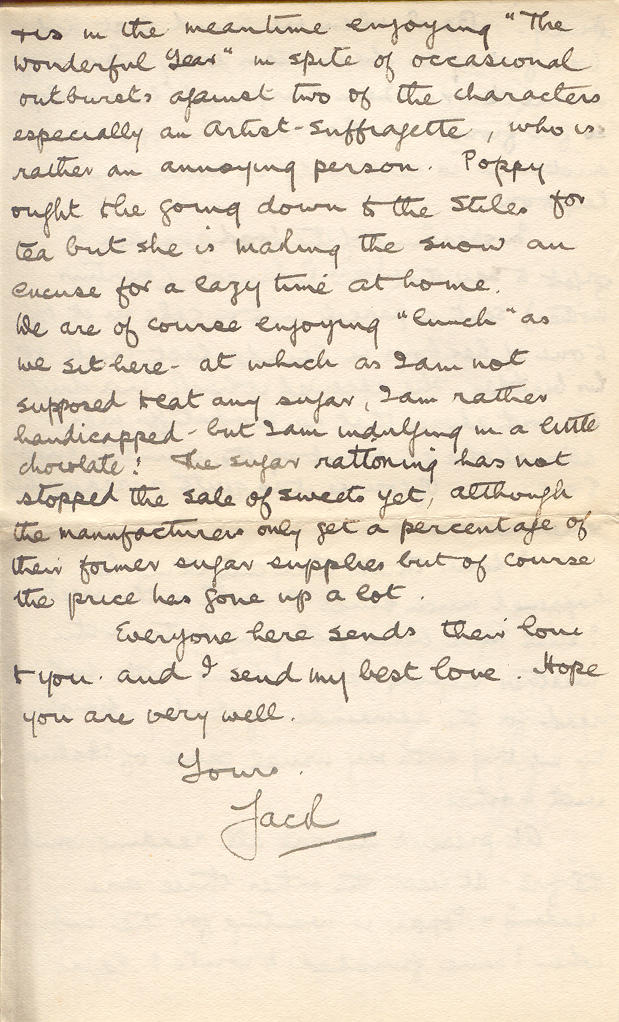 & is in the meantime enjoying "The
Wonderful Year" in spite of occasional
outbursts against two of the characters
especially an Artist-Suffragette, who is
rather an annoying person. Poppy
ought the going down to the Stiles for
tea but she is making the snow an
excuse for a lazy time at home.
We are of course enjoying "lunch" as
we sit here - at which as I am not
supposed to eat any sugar, I am rather
handicapped - but I am indulging in a little
chocolate! The sugar rationing has not
stopped the sale of sweets yet, although
the manufacturers only get a percentage of
their former sugar supplies but of course
the price has gone up a lot.
Everyone here sends their love
to you. and I send my best love. Hope
you are very well.
Yours.
Jack